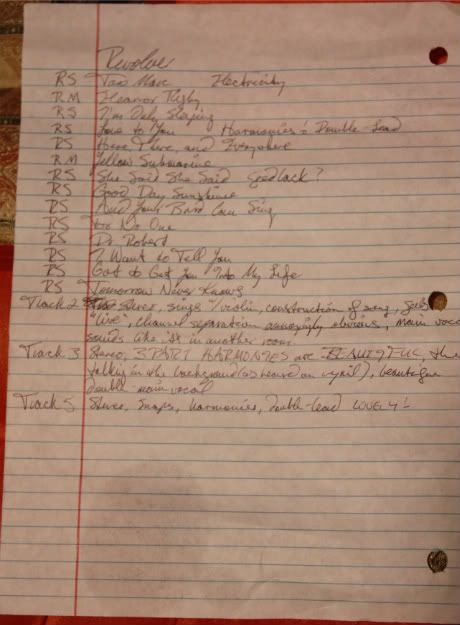 Revolver
RS Tax Man Electricity
RM Eleanor Rigby
RS I'm Only Sleeping
RS Love to You Harmonies! Double-Lead
RS Here, There, and Everywhere
RM Yellow Submarine
RS She Said She Said Geedlack?
RS Good Day Sunshine
RS And Your Bird Can Sing
RS For No One
RS Dr Robert
RS I Want to Tell You
RS Got to Get You Into My Life
RS Tomorrow Never Knows
Track 2 Stereo, sings w/violin, construction of song, feels
"live", channel separation annoyingly obvious, main vocal
sounds like it's in another room
Track 3 Stereo, 3 PART HARMONIES are BEAUTIFUL, the
talking in the background (as heard on vynil),
double-main vocal
Track 5 Stereo, Snaps, harmonies, double-lead LOVELY!